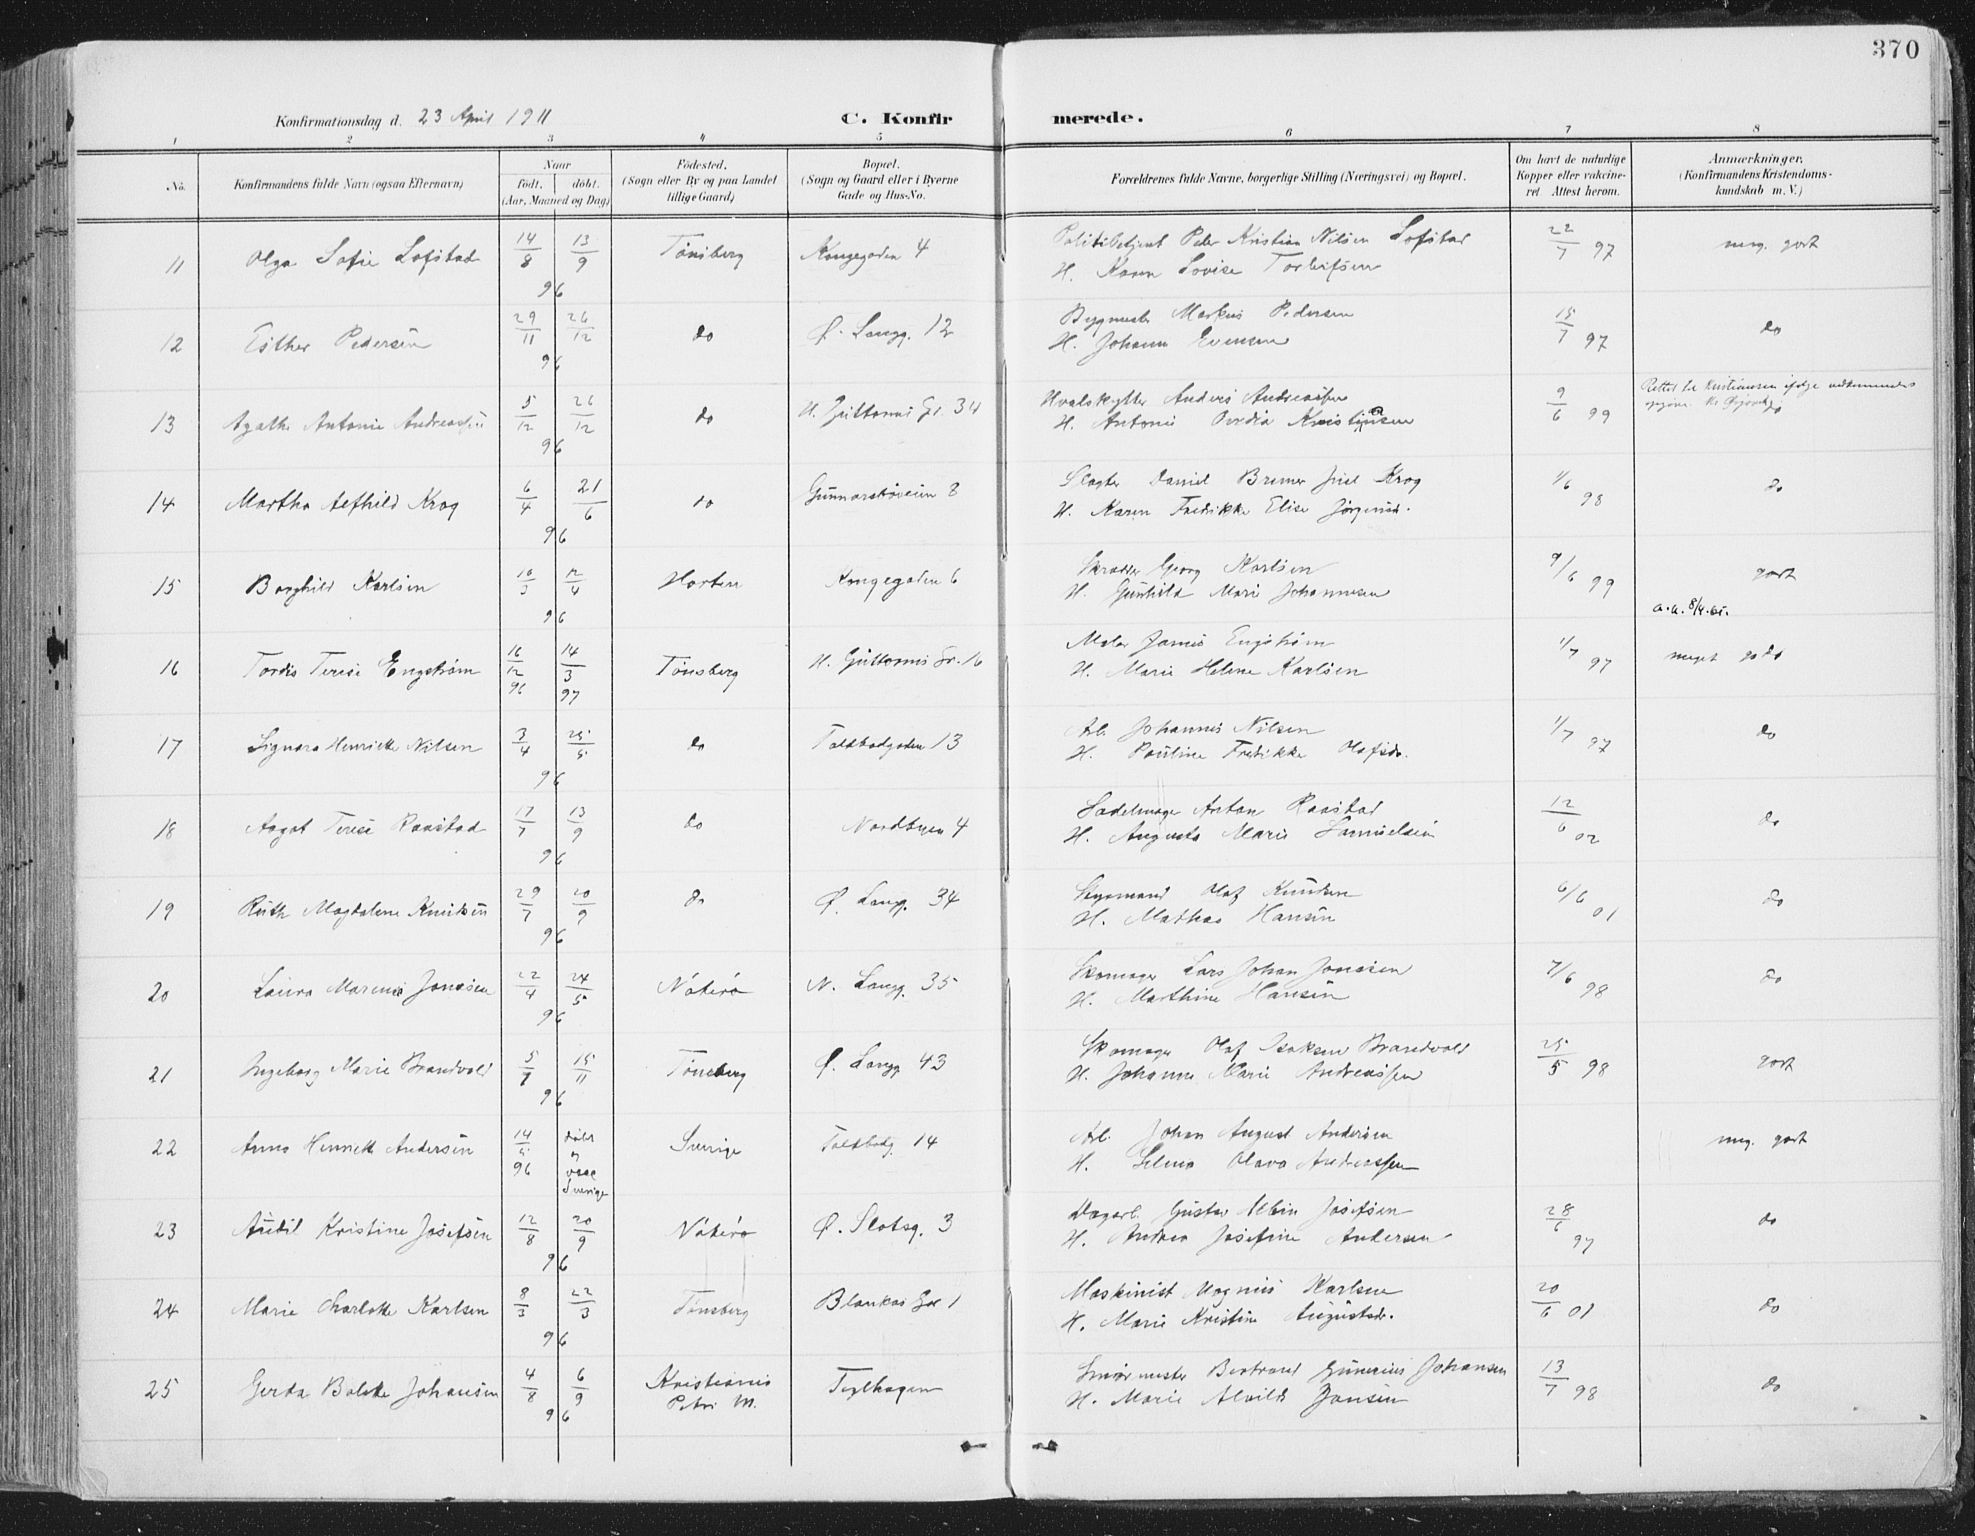 370
Konfirmationsdag d. 23 April 1911
C. Konfirmerede.
1 2 3 4 5 6 7 8
No. Konfirmandens fulde Navn (ogsaa Efternavn)
Naar födt. döbt. (Aar, Maaned og Dag)
Födested. (Sogn eller By og paa Landet tillige Gaard)
Bopæl. (Sogn og Gaard eller i Byerne Gade og Hus-No.
Forældrenes fulde Navne, borgerlige Stilling (Næringsvei) og Bopæl.
Om havt de naturlige Kopper eller vakcineret. Attest herom.
Anmærkninger. (Konfirmandens Kristendomskundskab m. V.)
11 Olga Sofie Lofstad 14/8 13/9 96 Tönsberg Kongegaden 4 Politibetjent Peder Kristian Nilsen Lofstad 22/7 97 meg. godt
H. Karen Lovise Torleifsen
12 Esther Pedersen 29/11 26/12 96 do Ø. Langg. 12 Bygmester Markus Pedersen 15/7 97 do
H. Johanne Evensen
13 Agathe Antonie Andreassen 5/12 26/12 96 do H. Guttorms Gr. 34 Hvalskytter Anders Andreassen 9/6 99 Rettet til Kristiansen ifølge do
H. Antonie Kristiansen
14 Martha Alfhild Krog 6/4 21/6 96 do Gunnarsböveien 8 Slagter Daniel Bremer Juel Krog 1/6 98 do
H. Karen Fredrikke Elise Jørgensd.
15 Borghild Karlsen 16/3 12/4 96 Horten Kongegaden 6 Skrædder Georg Karlsen 9/6 99 godt
H. Gunhild Marie Johannesen a.a. 8/4.
16 Tordis Terese Engström 16/12 96 14/3 97 Tönsberg H. Guttorms Gr. 16 Maler James Engström 1/7 97 meget godt
H. Marie Helene Karlsen
17 Signora Henriette Nilsen 3/4 25/5 96 do Toldbodgaden 13 Arb. Johannes Nilsen 1/7 97 do
H. Pauline Fredrikke Olafsd.
18 Aagot Terese Raastad 17/7 13/9 96 do Nordbyen 4 Sadelmager Anton Raastad 12/6 02 do
H. Augusta Marie Samuelsen
19 Ruth Magdalene Knudsen 29/7 20/9 96 do Ø. Langg. 34 Styrmand Olaf Knudsen 6/6 01 do
H. Mathea Hansen
20 Laura Marence Jonasen 22/4 24/5 96 Nöterö N. Langg. 35 Skomager Lars Johan Jonasen 7/6 98 do
H. Marthine Hansen
21 Ingeborg Marie Brandvold 5/7 15/11 96 Tönsberg Ø. Langg 43 Skomager Olaf Isaksen Brandvold 25/5 98 godt
H. Johanne Marie Andreassen
22 Anna Henriette Andersen 14/5 96 döbt Sverige Sverige Toldbodg. 14 Arb. Johan August Andersen meg. godt
H. Selma Olava Andreassen
23 Audil Kristine Josefsen 12/8 20/9 96 Nöterö Ø. Slotsg. 3 Dagarb. Gustav Albin Josefsen 28/6 97 do
H. Andrea Josefine Andersen
24 Marie Charlotte Karlsen 8/3 22/3 96 Tönsberg Blankas Gr 1 Maskinist Magnus Karlsen 20/6 01 do
H. Marie Kristine Augustsdr.
25 Gerda Bolette Johansen 4/8 6/9 96 Kristiania Petri M. Teglhagen Bertrand Gunerius Johansen 13/7 98 do
H. Marie Alvilde Jansen